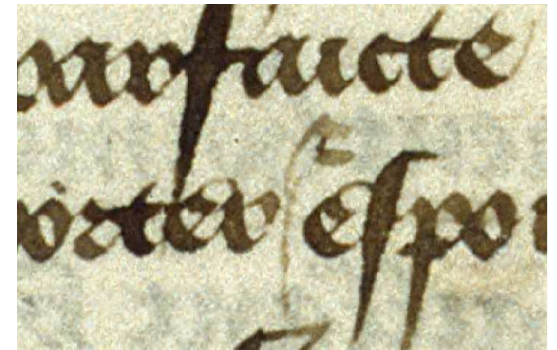 parfaicte
porter espo